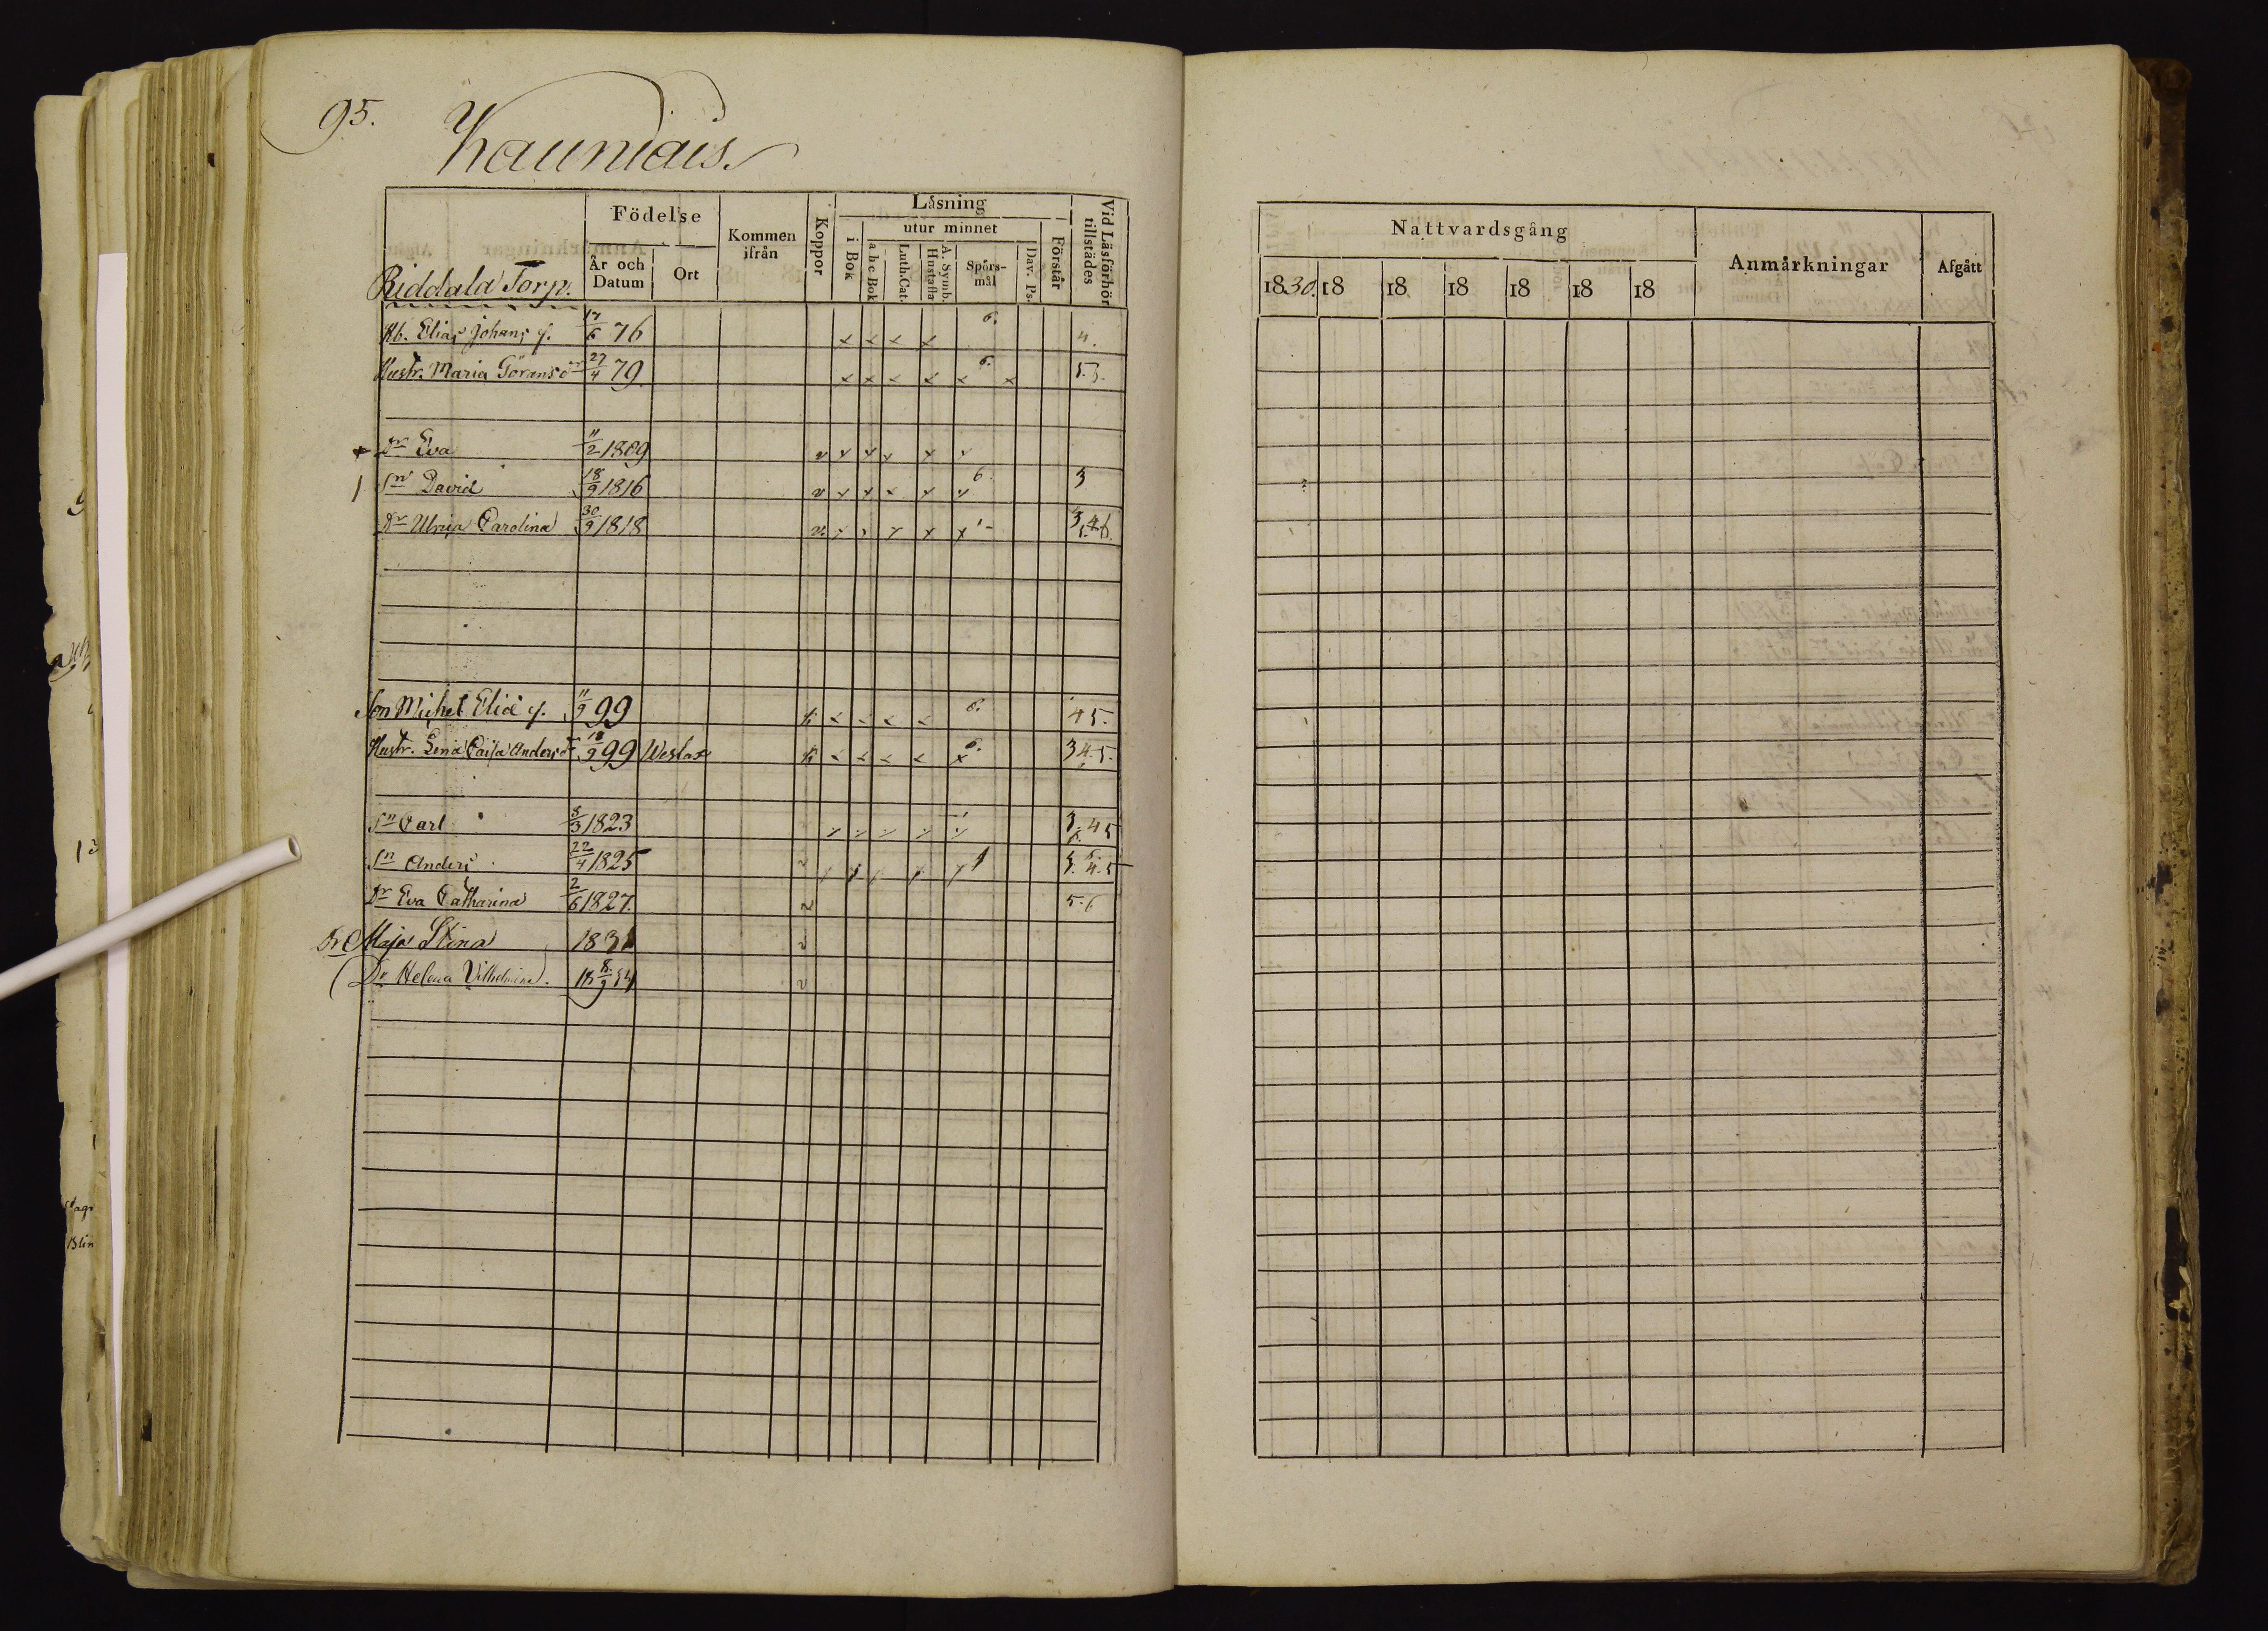 95.
Kauniais.
Födelse
År och Datum
Ort
Kommen ifrån
Koppor
Läsning
i Bok
utur minnet
a b c Bok
Luth. Cat.
A. Symb. Hustafla
Spörsmål
Dav. Ps.
Förstår
Vid Läsförhör tillstädes
Riddala Torp.
Rb. Elias Johans s. 17/6 76 6. 4.
Hustr. Maria Görans dr 27/4 79. 6. 5.
Dr Eva 11/2 1809 v
1 Sn David 18/9 1816 v 6 3
Dr Ulrica Carolina 30/9 1818 v.
Son Michel Eliæ s. 11/9 99 k 6. 4 5.
Hustr. Lena Caisa Anders dr 18/9 99 Westax k 6. 3 4. 5.
Sn Carl 5/3 1823 3. 4 5
Sn Anders 22/4 1825 v 4. 5
Dr Eva Catharina 2/6 1827. v 5. 6
Dr Maja Stina 1831 v
(Dr Helena Vilhelmina). 18 8/9 34 v
Nattvardsgång
1830. 18 18 18 18 18 18
Anmärkningar
Afgått